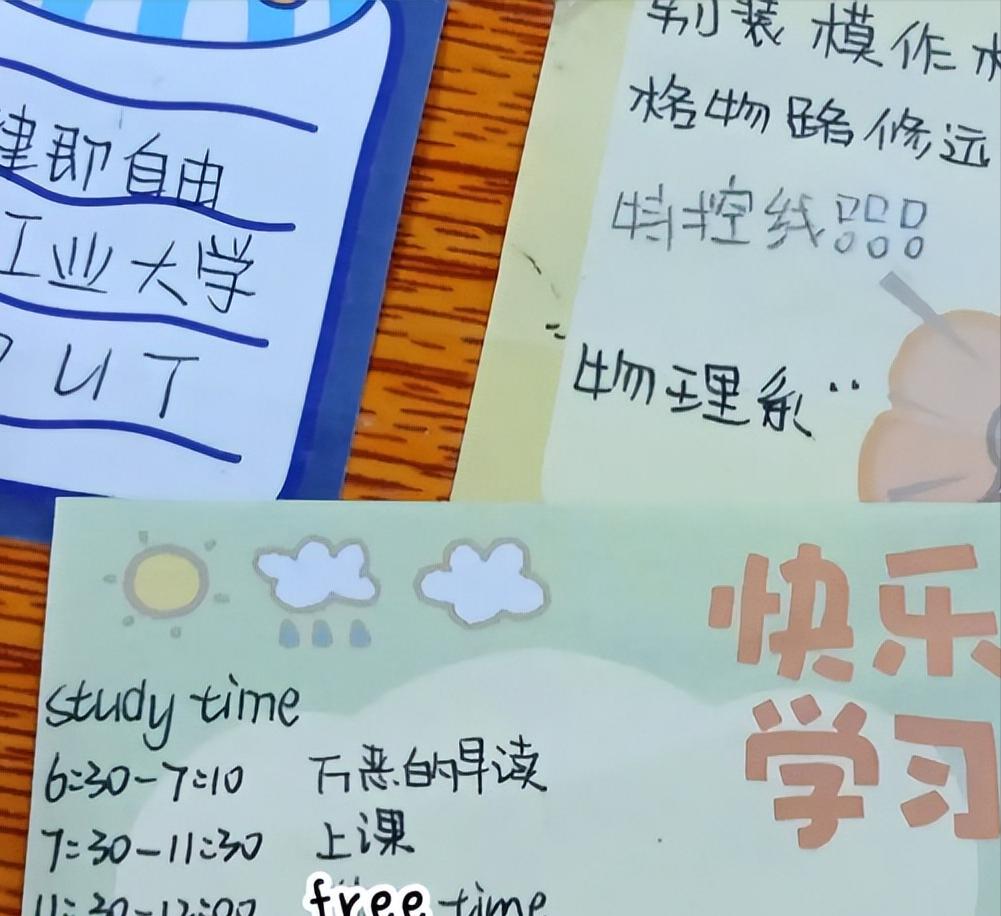 建即自由
工业大学
UT
别装模作
格物路修远
特控线!!!
物理系
快乐
学习
study time
6:30-7:10 万恶的早读
7:30-11:30 上课
11:30-12:00 free time